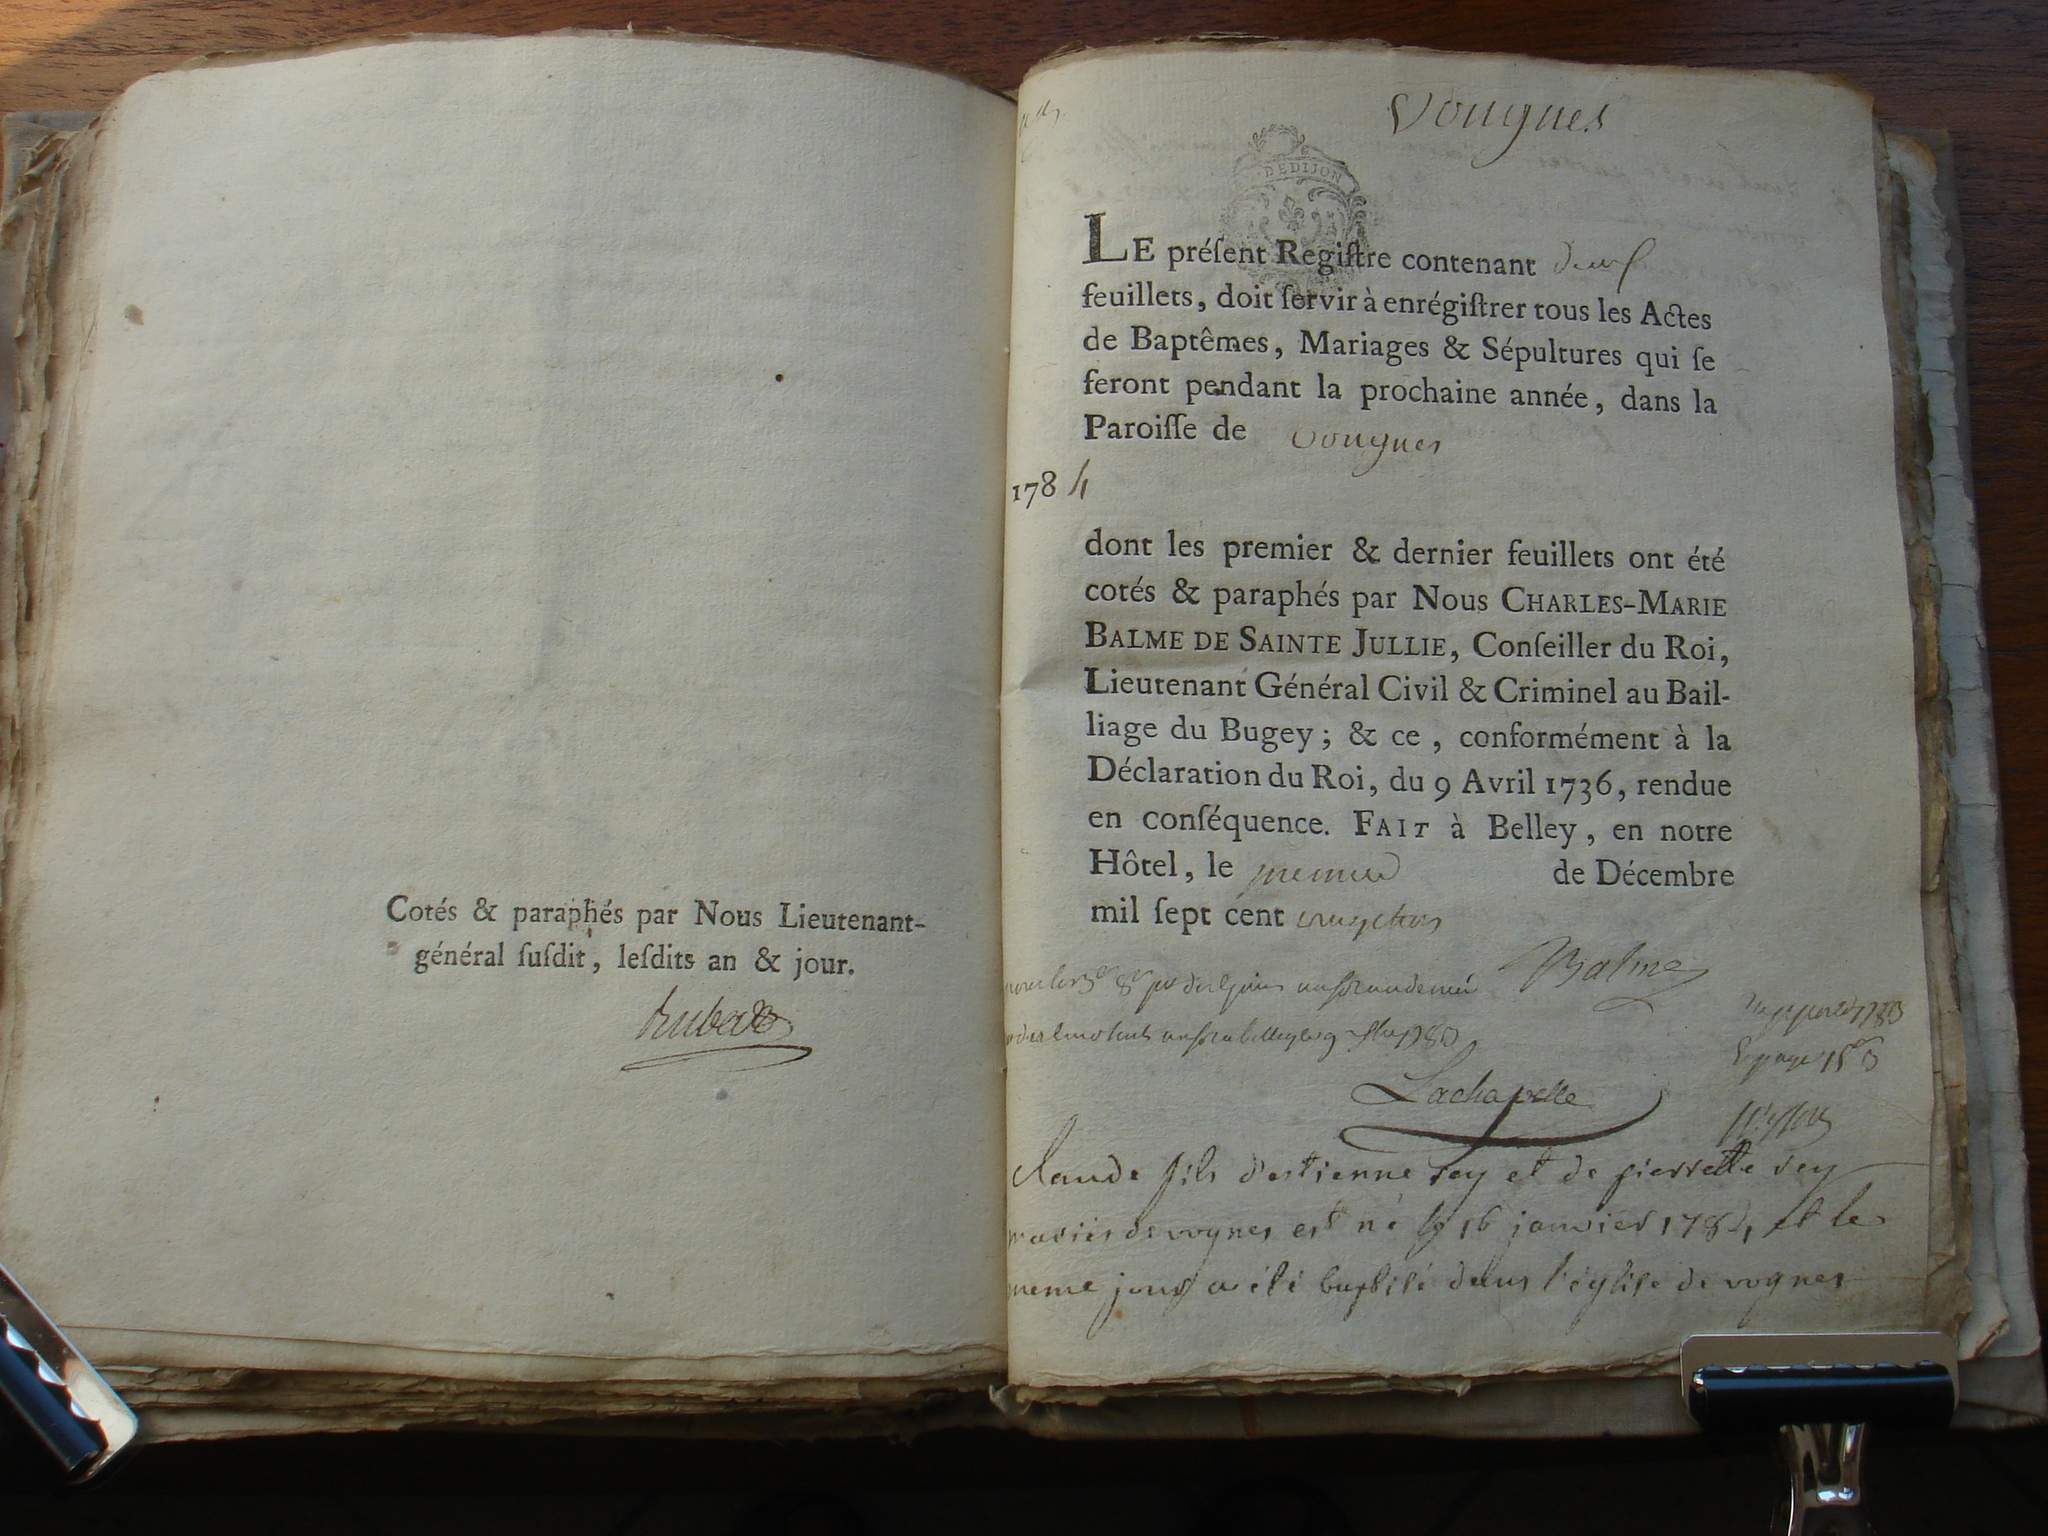 Cotés & paraphés par Nous Lieutenant-
général ſuſdit, leſdits an & jour.
Vougnes
DEDIJON
LE préſent Regiſtre contenant
feuillets, doit ſervir à enrégiſtrer tous les Actes
de Baptêmes, Mariages & Sépultures qui ſe
feront pendant la prochaine année, dans la
Paroiſſe de vougnes
1784
dont les premier & dernier feuillets ont été
cotés & paraphés par Nous CHARLES-MARIE
BALME DE SAINTE JULLIE, Conſeiller du Roi,
Lieutenant Général Civil & Criminel au Bail-
liage du Bugey; & ce, conformément à la
Déclaration du Roi, du 9 Avril 1736, rendue
en conſéquence. FAIT à Belley, en notre
Hôtel, le premier de Décembre
mil ſept cent
Balme
Lachapelle
Claude fils d'estienne rey et de pierrette rey
mariés de vognes est né le 16 janvier 1784 et le
meme jour a été baptisé dans l'église de vognes